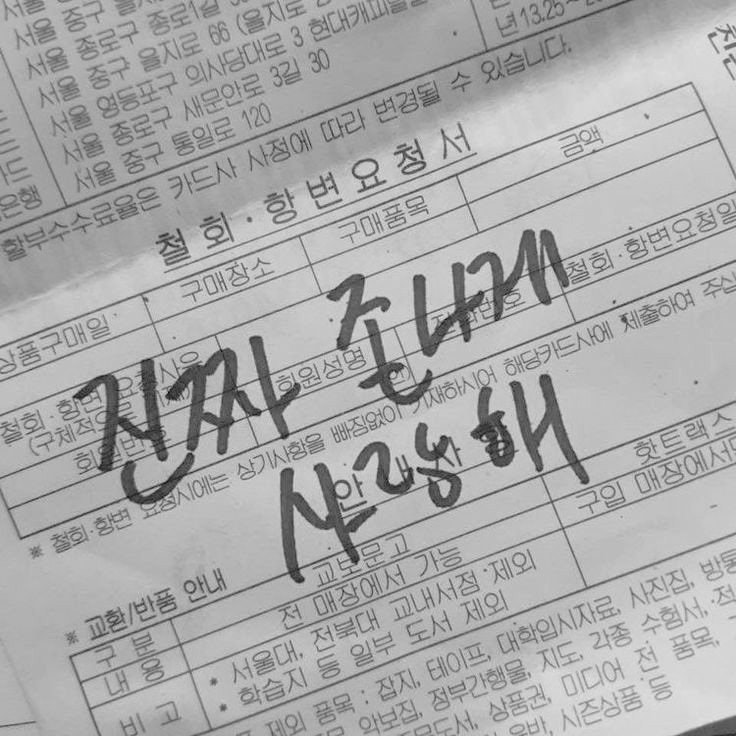 서울 종로구 종로1길
서울 중구 을지로 66 (을지로
서울 영등포구 의사당대로 3 현대캐피탈빌
서울 종로구 새문안로 3길 30
서울 중구 통일로 120
년 13.25~
은행
할부수수료율은 카드사 사정에 따라 변경될 수 있습니다.
철회·항변요청서
상품구매일 구매장소 구매품목 금액
철회·항변요청일
철회·항변 요청사유
(구체적
회원번호 회원성명 전화번호
진짜 존나게
사랑해
※ 철회·항변 요청시에는 상기사항을 빠짐없이 기재하시어 해당카드사에 제출하여 주십
안내사항
※ 교환/반품 안내
구분 교보문고 핫트랙스
내용 전 매장에서 가능 구입 매장에서만
비고 * 서울대, 전북대 교내서점 제외
* 학습지 등 일부 도서 제외
제외 품목 : 잡지, 테이프, 대학입시자료, 사진집, 방통
악보집, 정부간행물, 지도, 각종 수험서, 적
상품권, 미디어 전 품목,
음반, 시즌상품 등